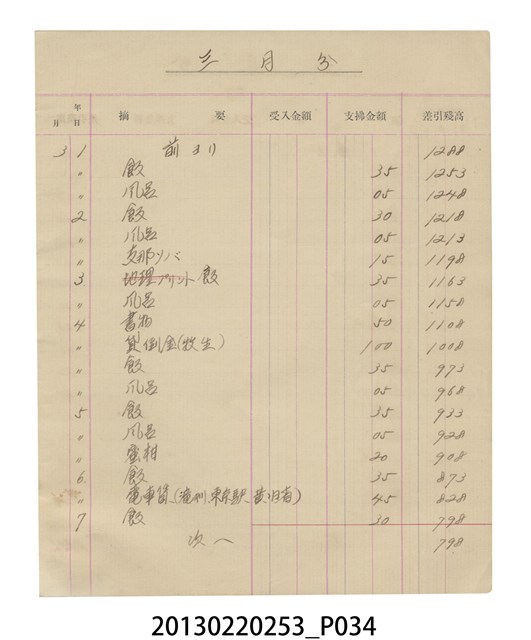 三月分
年
月 日 摘 要 受入金額 支拂金額 差引殘高
3 1 前ヨリ 1288
〃 飯 35 1253
〃 風呂 05 1248
2 飯 30 1218
〃 風呂 05 1213
〃 支那ソバ 15 1198
3 地理プリント 飯 35 1163
〃 風呂 05 1158
4 書物 50 1108
〃 貸倒金(牧生) 100 1008
〃 飯 35 973
〃 風呂 05 968
5 飯 35 933
〃 風呂 05 928
〃 蜜柑 20 908
6 飯 35 873
〃 電車賃 45 828
7 飯 30 798
次へ 798
20130220253_P034